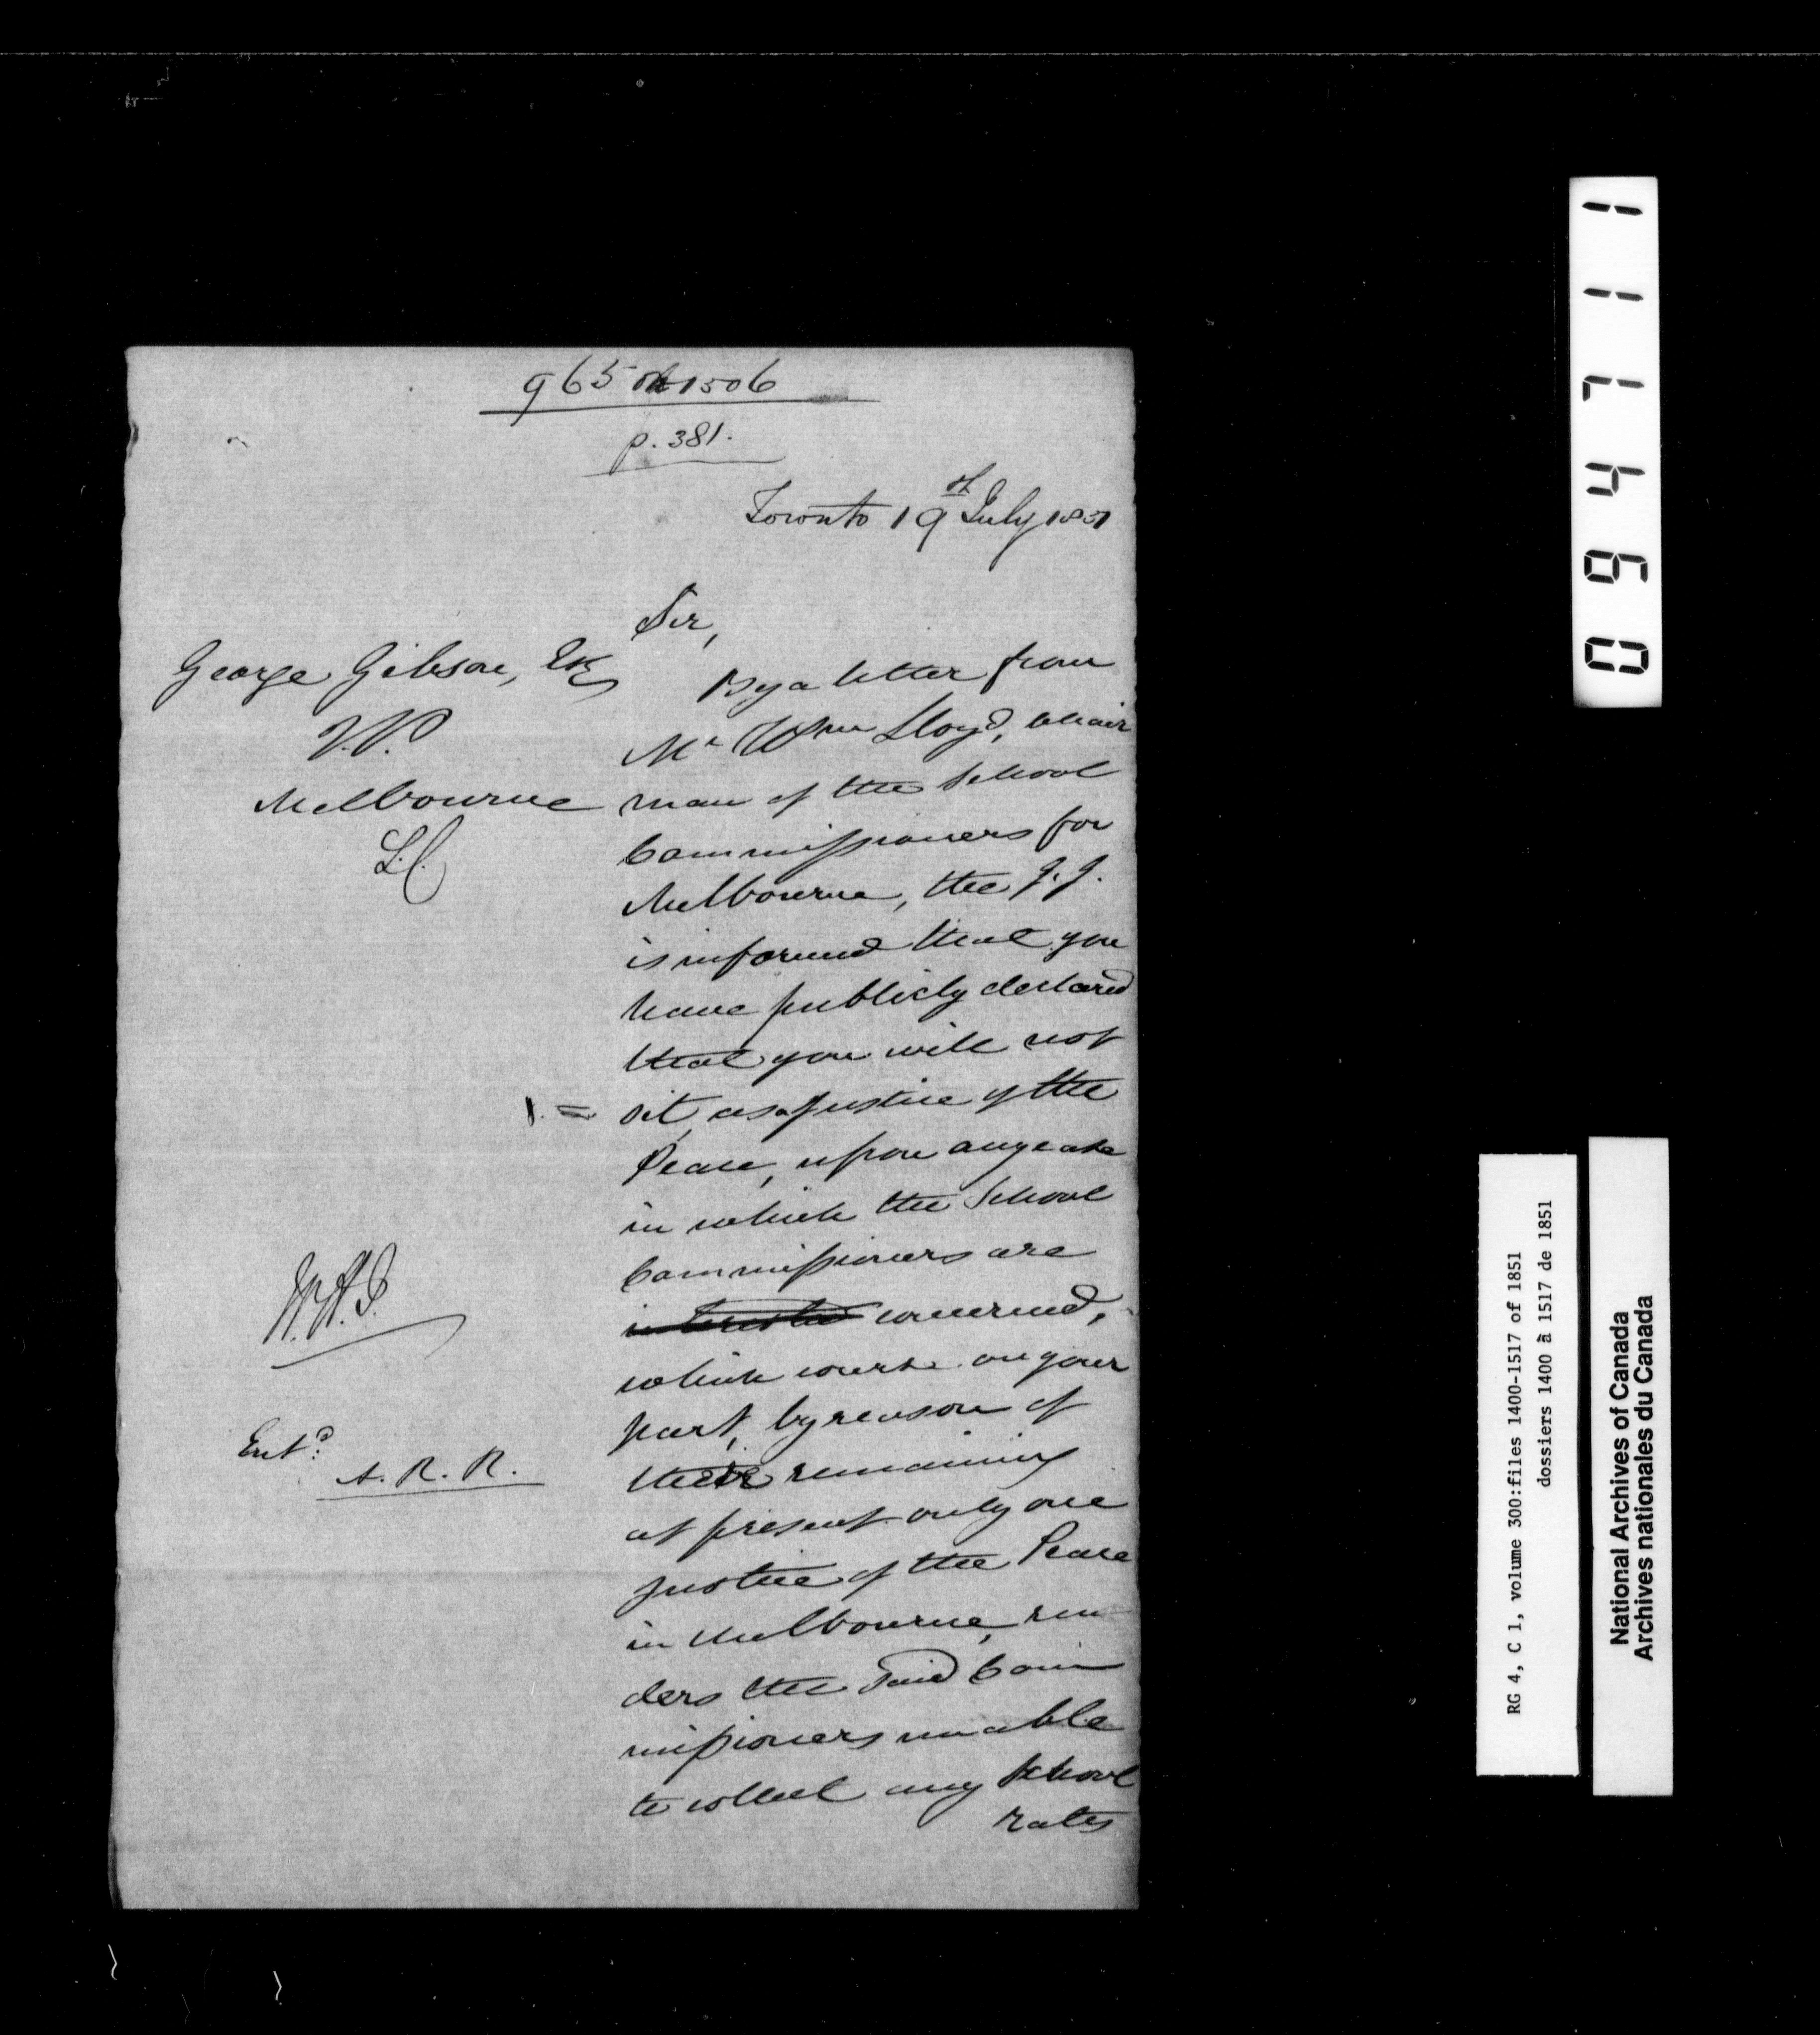 965 of 1506
p. 381.
Toronto 19th July 1851
Sir,
George Gibson, Esq
J.P.
Melbourne
L.C.
By a letter from
Mr Wm Lloyd, Chair
man of the School
Commissioners for
Melbourne, the G.G.
is informed that you
have publicly declared
that you will not
sit, as a Justice of the
Peace, upon any case
in which the School
Commissioners are
interested concerned,
which course on your
part, by reason of
there remaining
at present only one
Justice of the Peace
in Melbourne, ren
ders the said Com
missioners unable
to collect any School
rates
Entd
A. R. R.
094711
RG 4, C 1, volume 300:files 1400-1517 of 1851
dossiers 1400 à 1517 de 1851
National Archives of Canada
Archives nationales du Canada